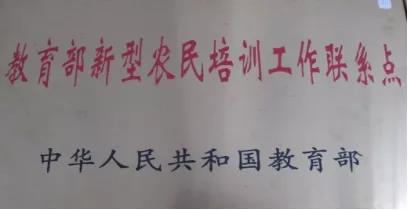 教育部新型农民培训工作联系点
中华人民共和国教育部